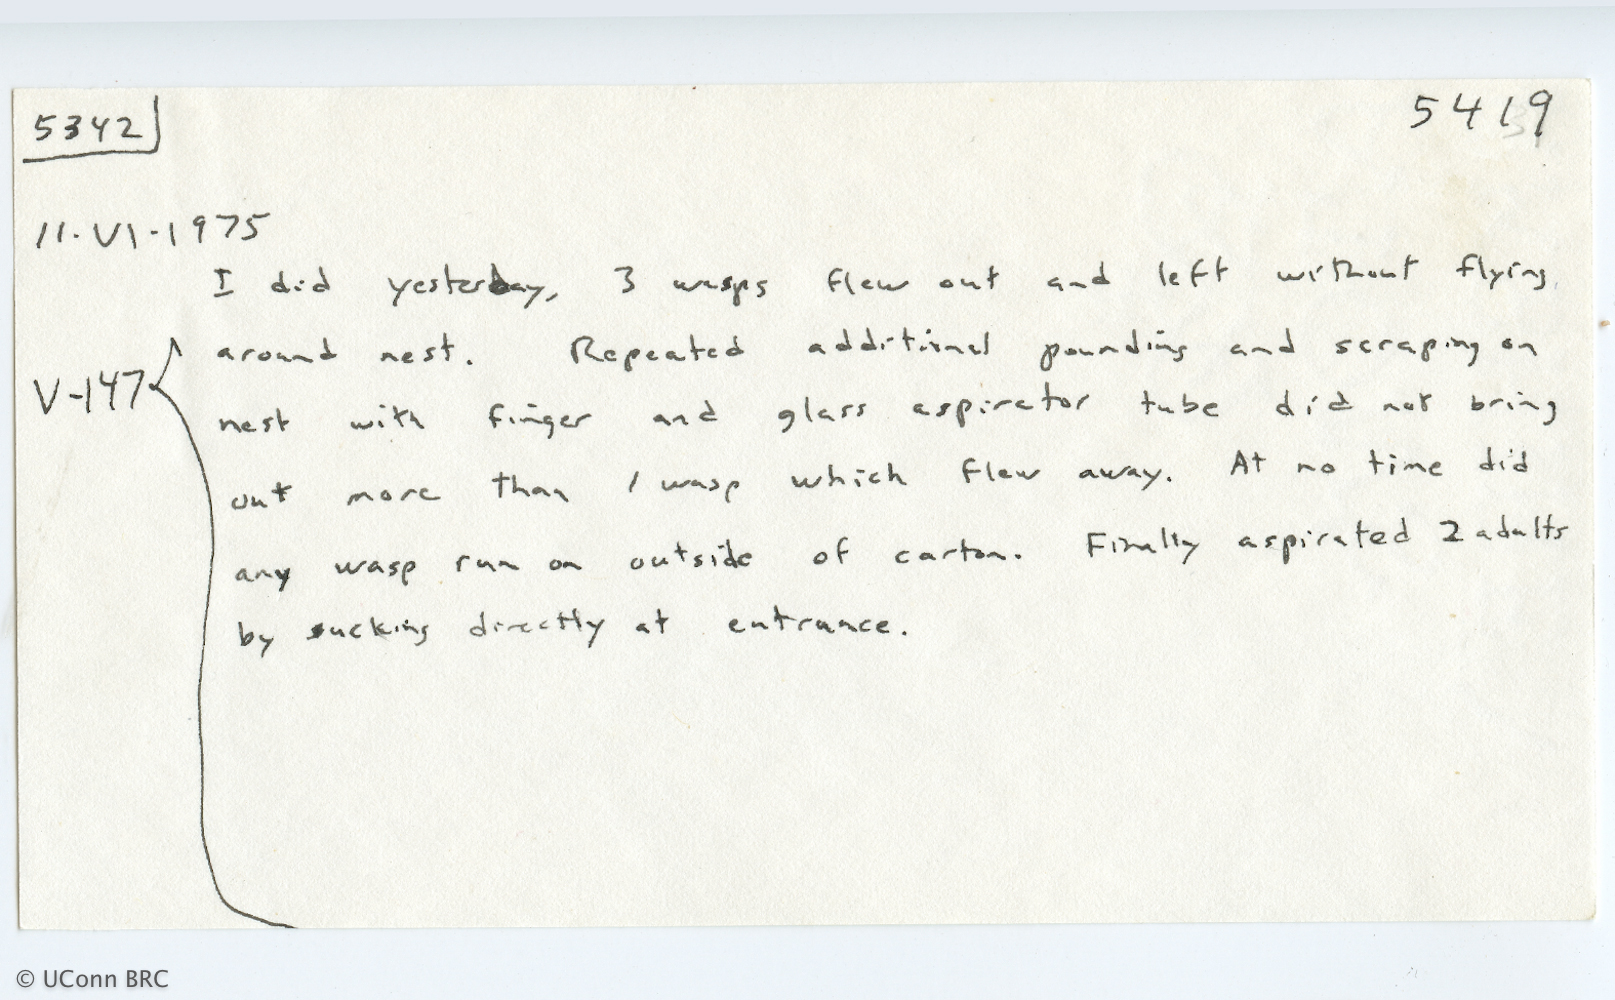 5342
5419
11.VI-1975
I did yesterday, 3 wasps flew out and left without flying
around nest. Repeated additional pounding and scraping on
V-147
nest with finger and glass aspirator tube did not bring
out more than 1 wasp which flew away. At no time did
any wasp run on outside of carton. Finally aspirated 2 adults
by sucking directly at entrance.
© UConn BRC